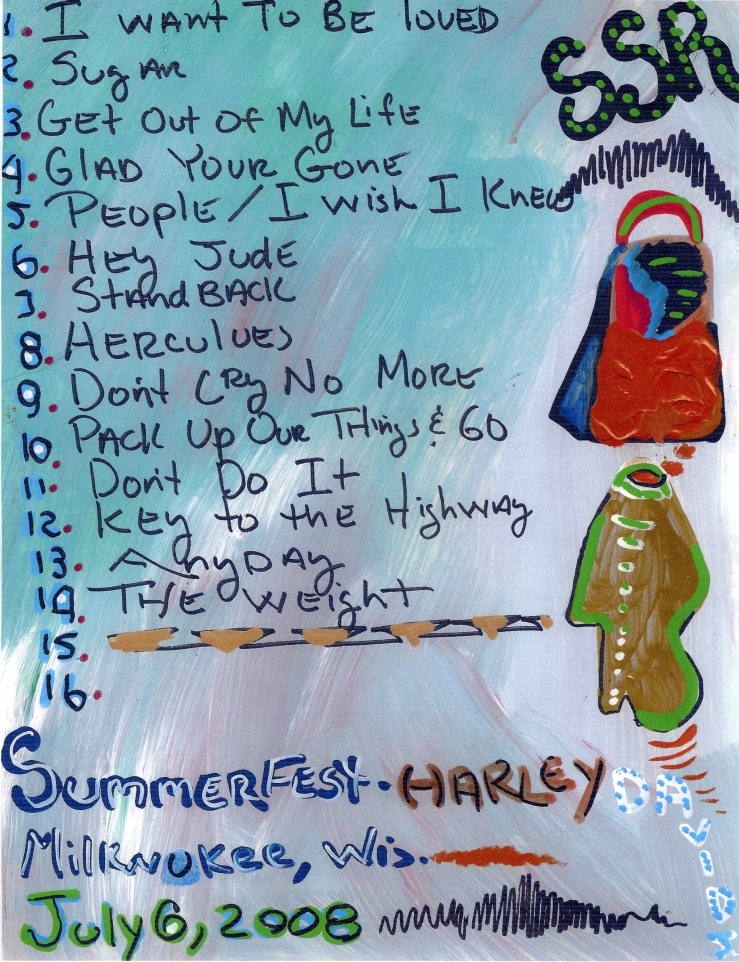 1. I WANT TO BE LOVED
SSR
2. SugAR
3. GEt Out OF My LiFE
4. GLAD YOUR GONE
5. PEOPLE / I Wish I KNEW
6. HEy JudE
7. StANdBACK
8. HERCULUES
9. Don't CRy No MORE
10. PACK Up OUR Things & GO
11. Don't Do It
12. KEy to tHE HighwAy
13. AnyDAy
14. THE WEight
15.
16.
SUMMERFESt. HARLEY DAVIDSON
Milkwokee, Wis.
July 6, 2008